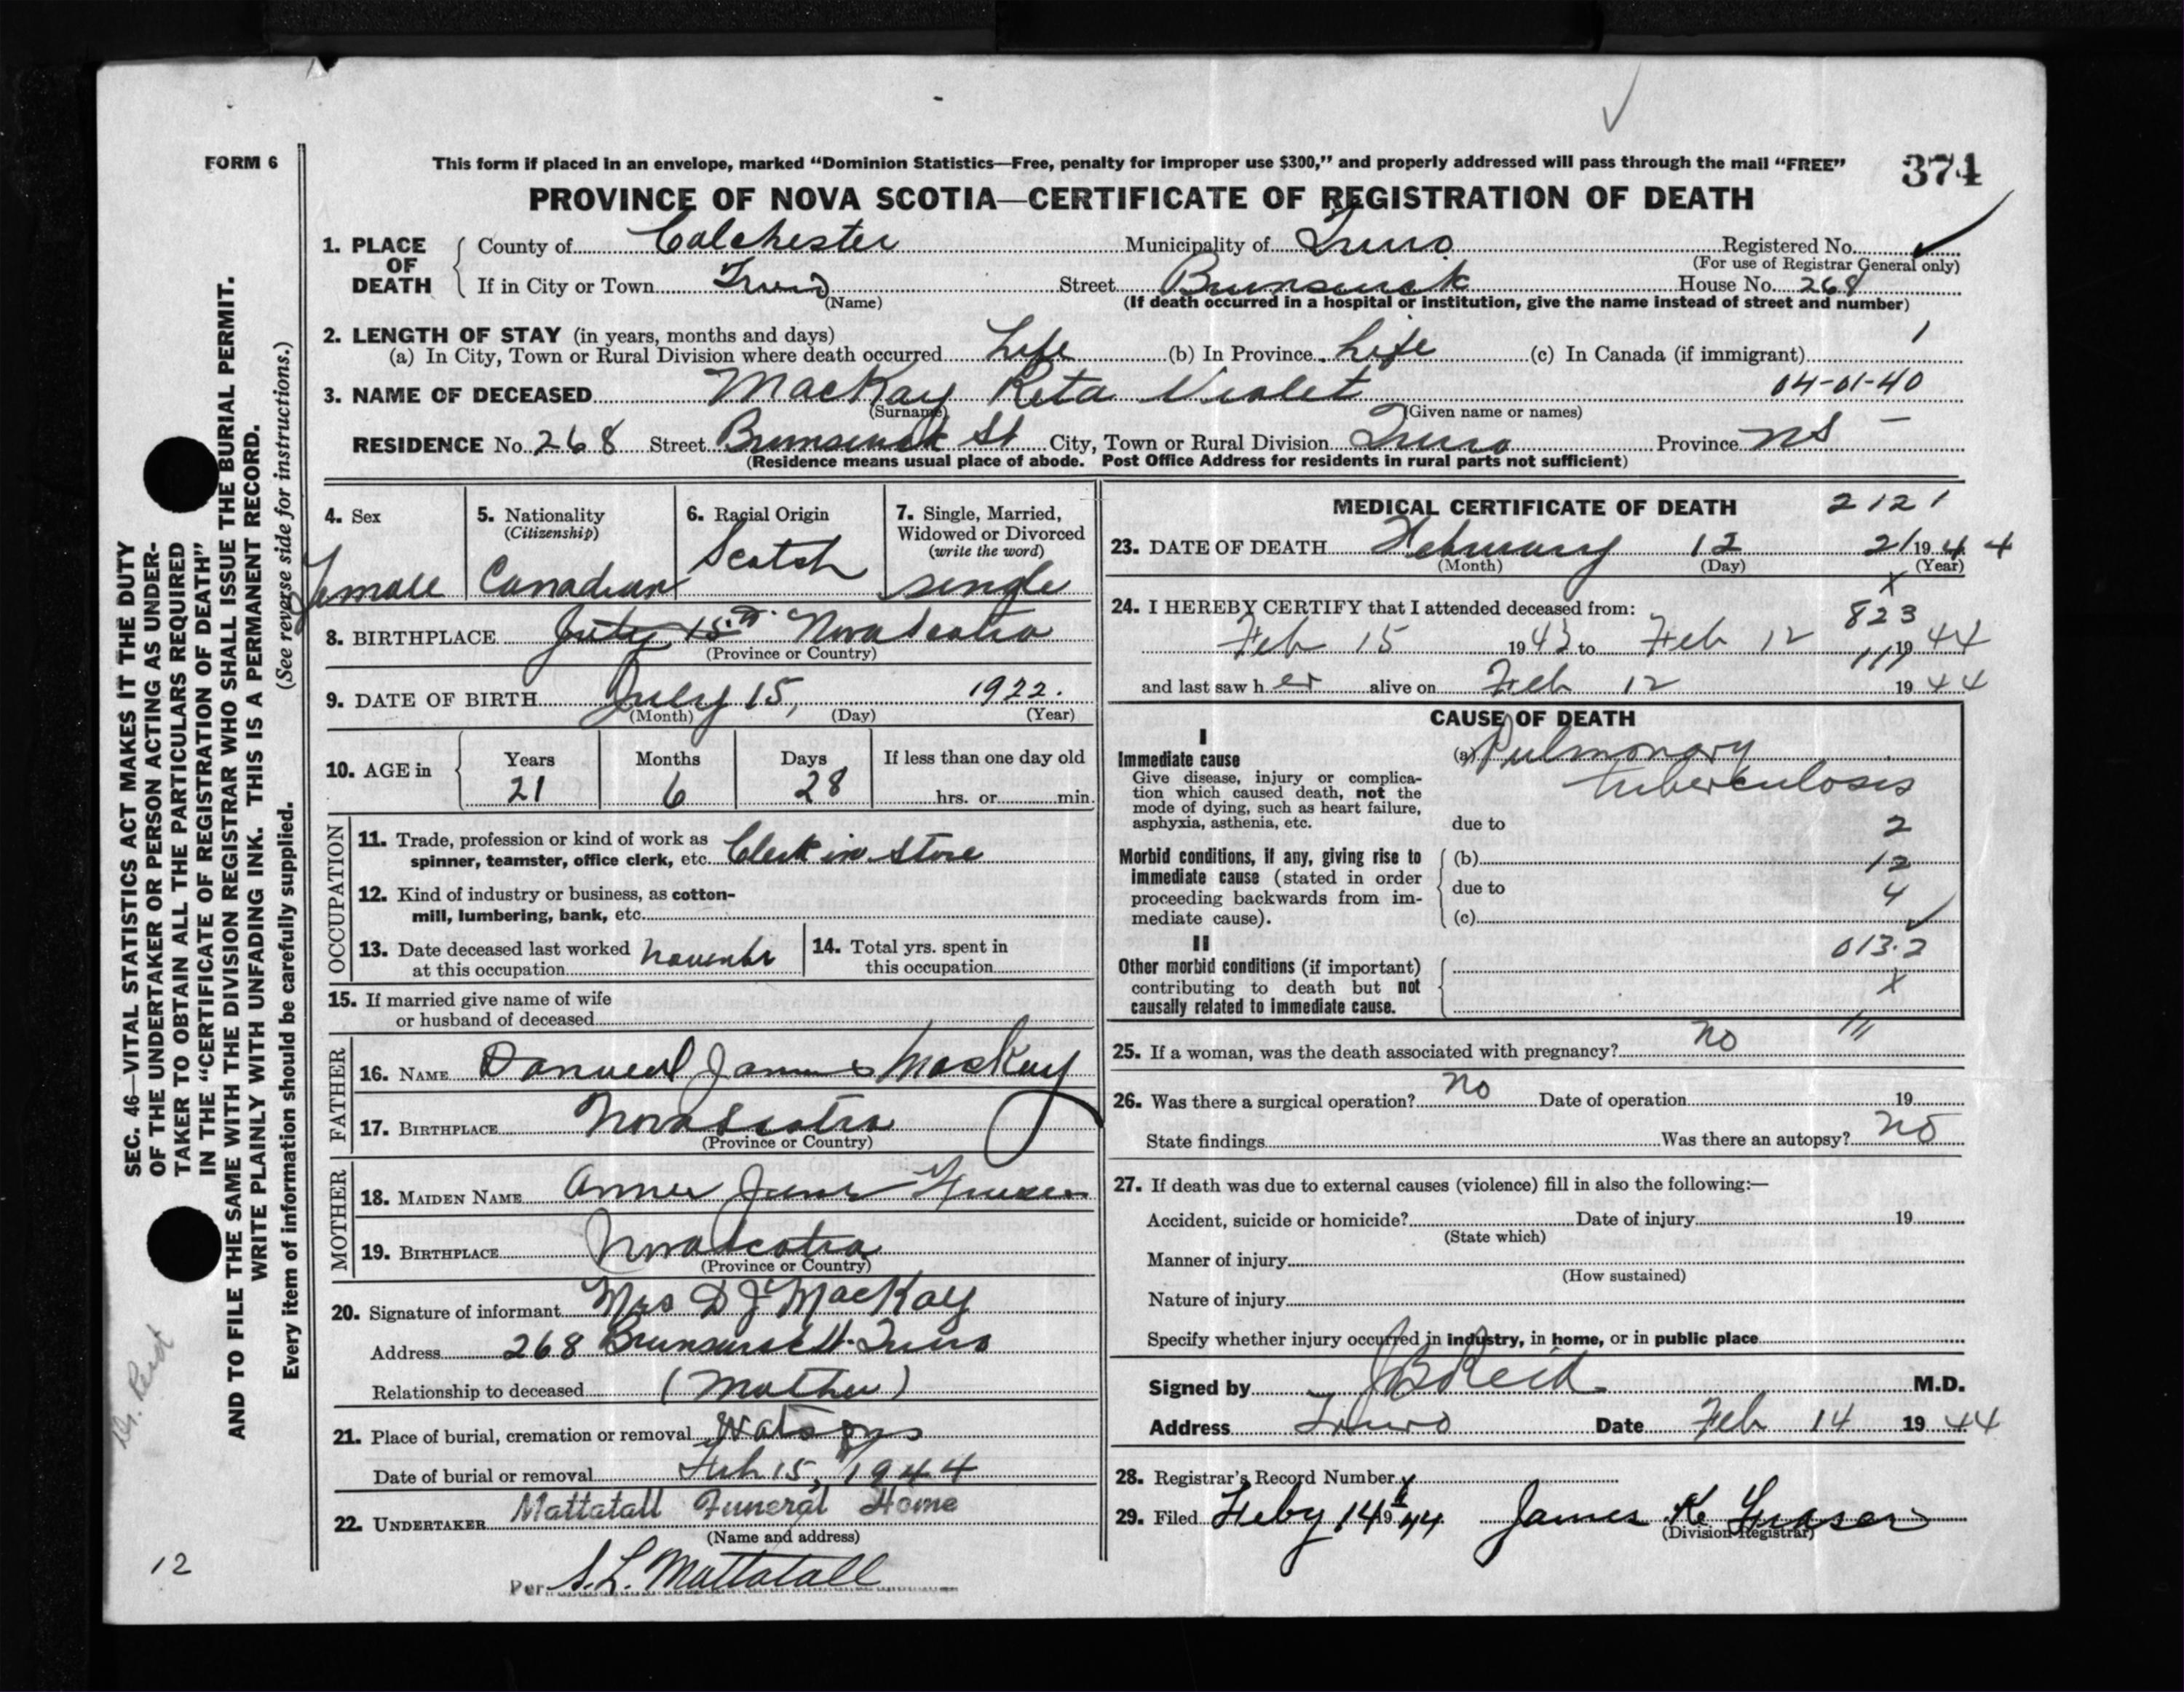 FORM 6
This form if placed in an envelope, marked “Dominion Statistics—Free, penalty for improper use $300,” and properly addressed will pass through the mail “FREE”
374
PROVINCE OF NOVA SCOTIA—CERTIFICATE OF REGISTRATION OF DEATH
1. PLACE OF DEATH
County of Colchester Municipality of Truro Registered No.
(For use of Registrar General only)
If in City or Town Truro Street Brunswick House No. 268
(Name) (If death occurred in a hospital or institution, give the name instead of street and number)
2. LENGTH OF STAY (in years, months and days)
(a) In City, Town or Rural Division where death occurred Life (b) In Province Life (c) In Canada (if immigrant) 1
3. NAME OF DECEASED MacKay Reta Violet 04-01-40
(Surname) (Given name or names)
RESIDENCE No. 268 Street Brunswick St City, Town or Rural Division Truro Province NS
(Residence means usual place of abode. Post Office Address for residents in rural parts not sufficient)
4. Sex
Female
5. Nationality
(Citizenship)
Canadian
6. Racial Origin
Scotch
7. Single, Married,
Widowed or Divorced
(write the word)
single
8. BIRTHPLACE July 15th Nova Scotia
(Province or Country)
9. DATE OF BIRTH July 15, 1922.
(Month) (Day) (Year)
10. AGE in
Years Months Days If less than one day old
21 6 28 hrs. or min.
OCCUPATION
11. Trade, profession or kind of work as
spinner, teamster, office clerk, etc. Clerk in Store
12. Kind of industry or business, as cotton-
mill, lumbering, bank, etc.
13. Date deceased last worked
at this occupation November
14. Total yrs. spent in
this occupation
15. If married give name of wife
or husband of deceased
FATHER
16. NAME James MacKay
17. BIRTHPLACE Nova Scotia
(Province or Country)
MOTHER
18. MAIDEN NAME Annie
19. BIRTHPLACE Nova Scotia
(Province or Country)
20. Signature of informant Mrs D J MacKay
Address 268 Brunswick St Truro
Relationship to deceased (Mother)
21. Place of burial, cremation or removal Watsons
Date of burial or removal Feb 15, 1944
22. UNDERTAKER Mattatall Funeral Home
(Name and address)
Per S.L. Mattatall
MEDICAL CERTIFICATE OF DEATH 2121
23. DATE OF DEATH February 12 21 1944
(Month) (Day) (Year)
x
24. I HEREBY CERTIFY that I attended deceased from: 823
Feb 15 1943 to Feb 12 1944
111
and last saw her alive on Feb 12 1944
CAUSE OF DEATH
I
Immediate cause
Give disease, injury or complica-
tion which caused death, not the
mode of dying, such as heart failure,
asphyxia, asthenia, etc.
(a) Pulmonary
tuberculosis
due to 2
Morbid conditions, if any, giving rise to
immediate cause (stated in order
proceeding backwards from im-
mediate cause).
(b) 12
due to 4
(c)
II
Other morbid conditions (if important)
contributing to death but not
causally related to immediate cause.
013.2
x
111
25. If a woman, was the death associated with pregnancy? no
26. Was there a surgical operation? no Date of operation 19
State findings Was there an autopsy? no
27. If death was due to external causes (violence) fill in also the following:—
Accident, suicide or homicide? Date of injury 19
(State which)
Manner of injury
(How sustained)
Nature of injury
Specify whether injury occurred in industry, in home, or in public place
Signed by J B Reid M.D.
Address Truro Date Feb 14 1944
28. Registrar's Record Number
29. Filed Feby 14 1944 James K Fraser
(Division Registrar)
SEC. 46—VITAL STATISTICS ACT MAKES IT THE DUTY
OF THE UNDERTAKER OR PERSON ACTING AS UNDER-
TAKER TO OBTAIN ALL THE PARTICULARS REQUIRED
IN THE “CERTIFICATE OF REGISTRATION OF DEATH”
AND TO FILE THE SAME WITH THE DIVISION REGISTRAR WHO SHALL ISSUE THE BURIAL PERMIT.
WRITE PLAINLY WITH UNFADING INK. THIS IS A PERMANENT RECORD.
(See reverse side for instructions.)
Every item of information should be carefully supplied.
Dr. Reid
12